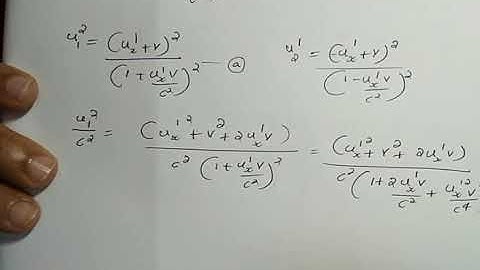 u₁² = (uₓ¹+v)² / (1 + uₓ¹v/c²)² — ⓐ u₂¹ = (-uₓ¹+v)² / (1 - uₓ¹v/c²)²
u₁²/c² = (uₓ¹² + v² + 2uₓ¹v) / c² (1 + uₓ¹v/c²)² = (uₓ¹² + v² + 2uₓ¹v) / c² (1 + 2uₓ¹v/c² + uₓ¹²v/c⁴